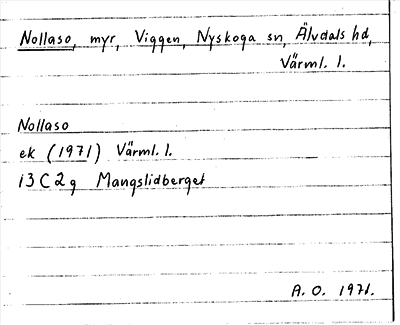 Nollaso, myr, Viggen, Nyskoga sn, Älvdals hd,
Värml. l.
Nollaso
ek (1971) Värml. l.
13C2g Mangslidberget
A. O. 1971.